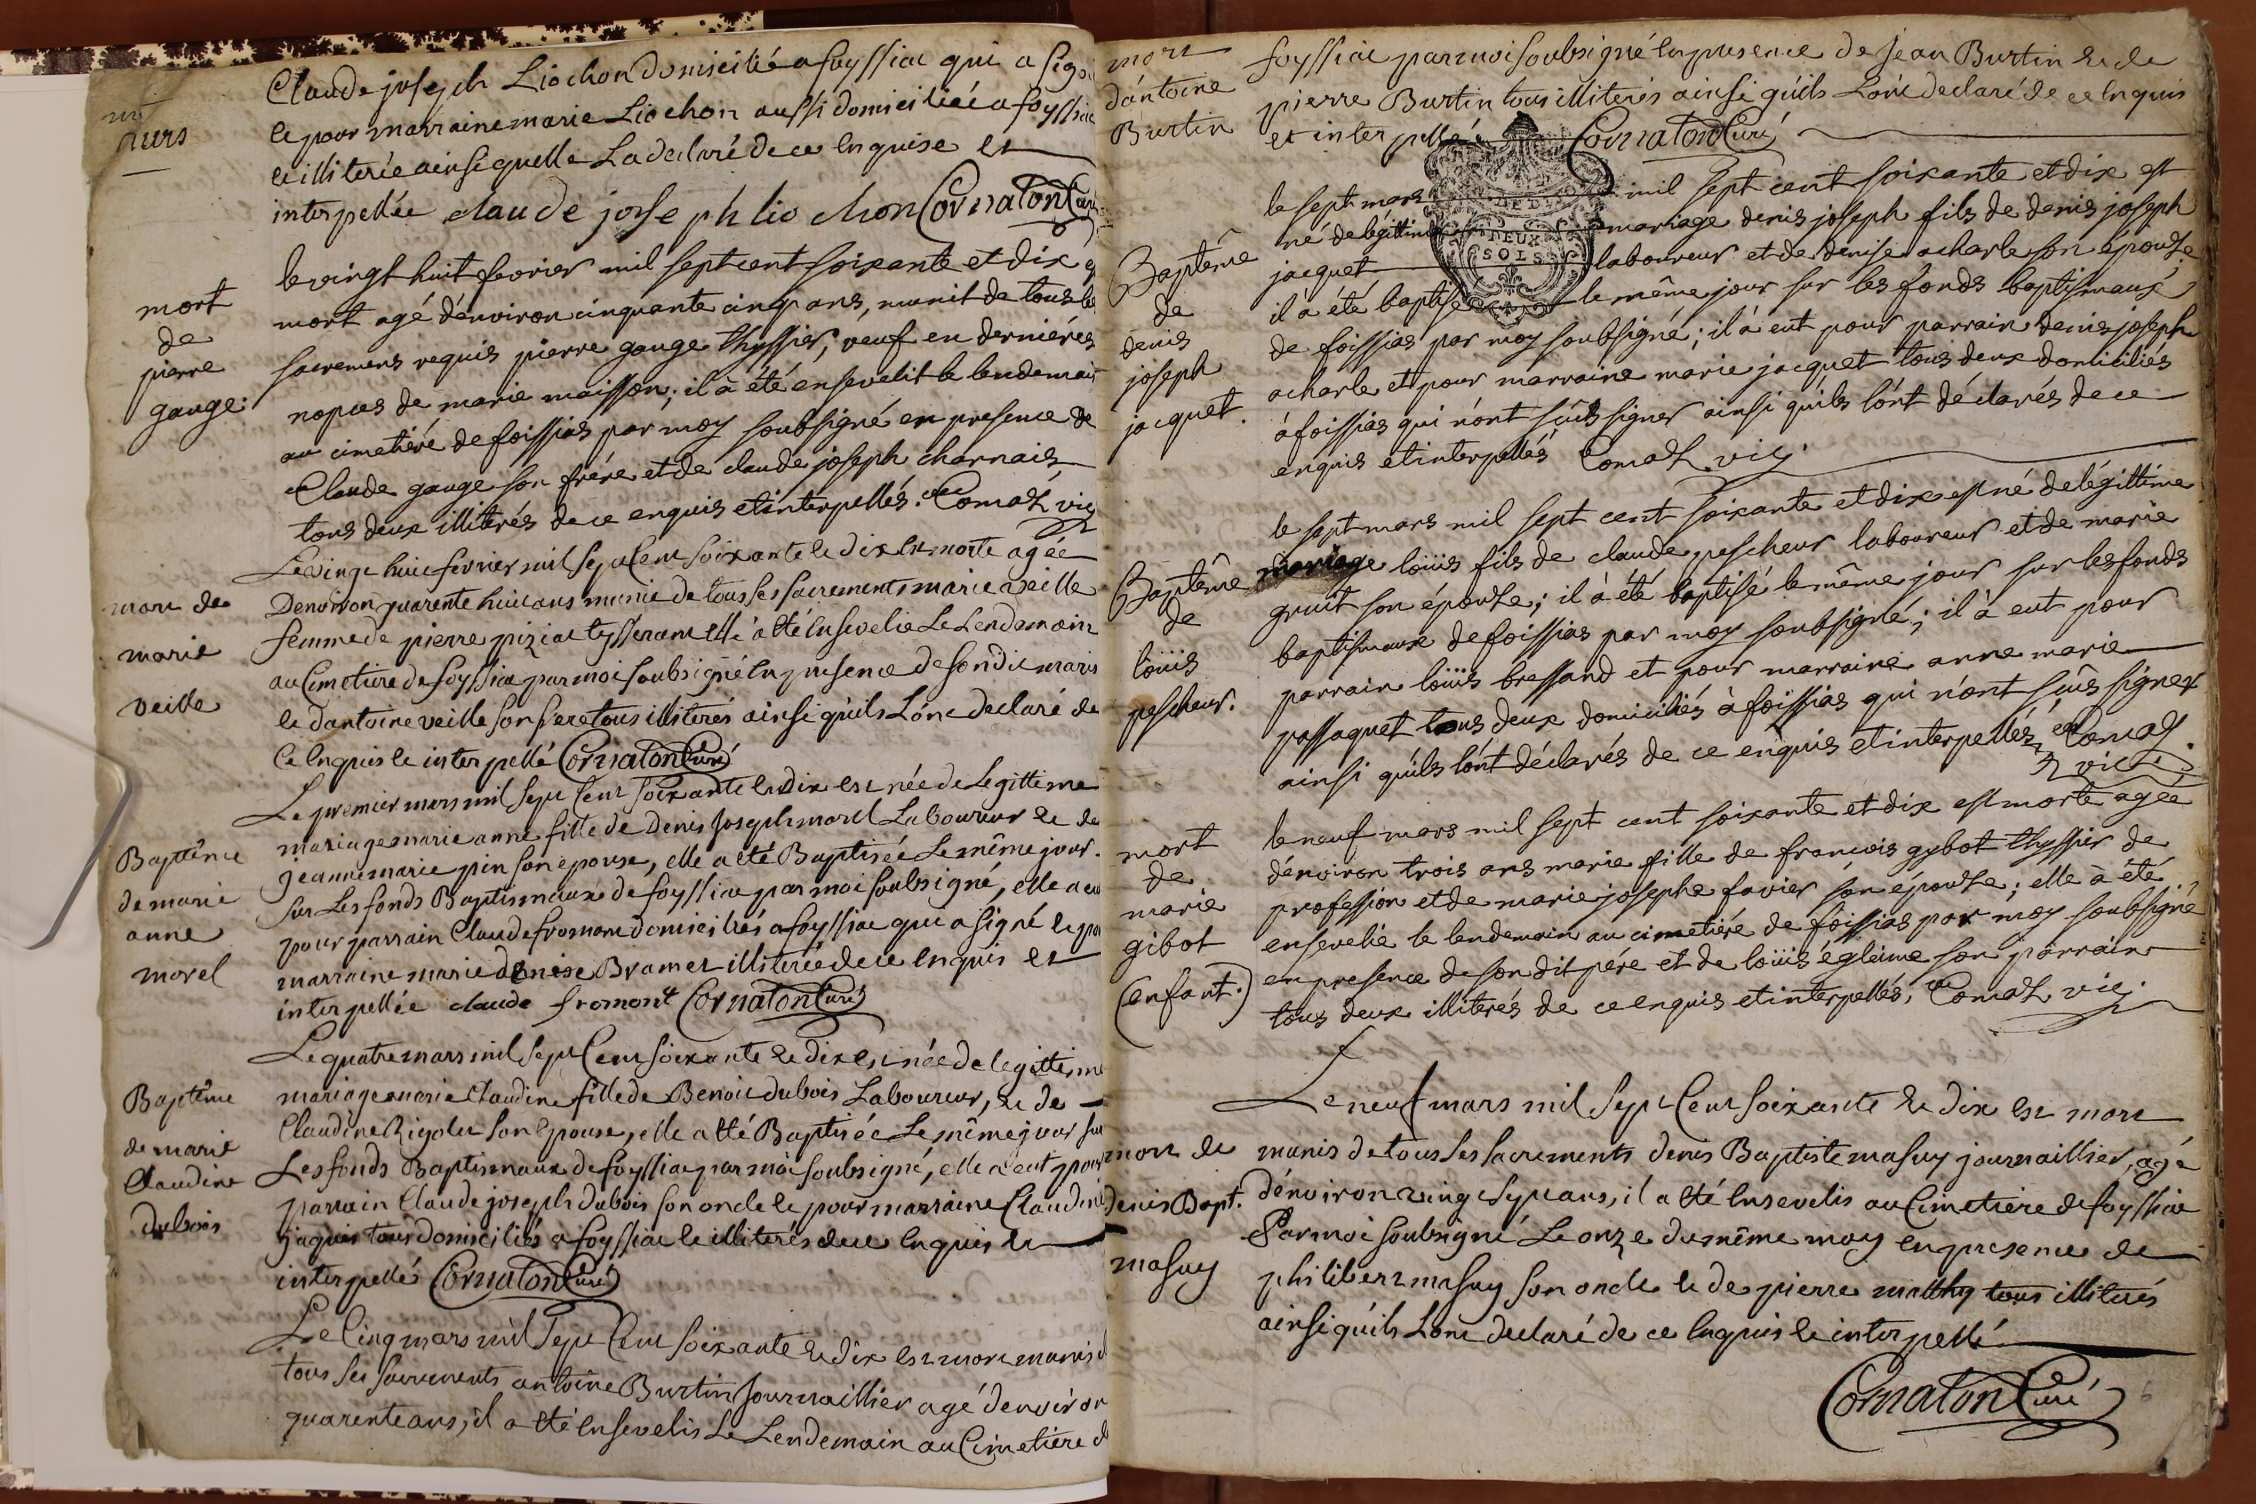 Claude joseph Liochon domicilié a foyssiac qui a signé
le pour marraine marie Liochon aussi domiciliée a foyssiac
et illiterée ainsi quelle La declaré de ce Enquise et
interpellée claude joseph liochon Cornaton Curé
mort
de
pierre
gauge.
le vingt huit fevrier mil sept cent soixante et dix est
mort agé d'énviron cinquante cinq ans, munit de tous les
sacremens requis pierre gauge thyssier, veuf en derniéres
nopces de marie maisson; il à été ensevelit le lendemain
au cimetiére de foissias par moy soubsigné en presence de
Claude gauge son frére et de claude joseph charnais
tous deux illiterés de ce enquis et interpellés. Comas vic.
mort de
marie
veille
Le vingt huit fevrier mil sept Cent soixante et dix est morte agée
Denviron quarente huit ans munie de tous ses sacrements marie veille
femme de pierre piziat tysserant elle a été Ensevelie Le Lendemain
au Cimetiere de foyssiac par moi soubsigné En presence de son dit maris
et d'antoine veille son frere tous illiterés ainsi qu'ils L'ónt declaré de
Ce Enquis et interpellé Cornaton Curé
Baptême
de marie
anne
morel
Le premier mars mil sept Cent soixante et dix est née de Legittime
mariage marie anne fille de Denis Joseph morel Laboureur et de
jeanne marie pin son epouse, elle a été Baptisée Le même jour
sur Les fonds Baptismaux de foyssiac par moi soubsigné, elle a eu
pour parrain Claude fromont domiciliés a foyssiac qui a signé et pour
marraine marie denise Bramet illiterée de ce Enquis et
interpellée claude fromont Cornaton Curé
Baptême
de marie
Claudine
dubois
Le quatre mars mil sept Cent soixante et dix est née de legittime
mariage marie Claudine fille de Benoit dubois Laboureur, et de
Claudine Rigolet son Epouse, elle a été Baptisée Le même jour sur
Les fonds Baptismaux de foyssiac par moi soubsigné, elle a eut pour
parrain Claude joseph dubois son oncle et pour marraine Claudine
jaquet tous domiciliés a foyssiac et illiterés de ce Enquis et
interpellés Cornaton Curé
Le Cinq mars mil sept Cent soixante et dix est mort munis de
tous ses sacrements antoine Burtin Journaillier agé denviron
quarente ans, il a été Ensevelis Le Lendemain au Cimetiere de
mort
d'antoine
Burtin
foyssiac par moi soubsigné En presence de jean Burtin et de
pierre Burtin tous illiterés ainsi qu'ils L'ónt declaré de ce Enquis
et interpellé Cornaton Curé
DEUX
SOLS
Baptême
de
denis
joseph
jacquet.
le sept mars mil sept cent soixante et dix est
né de légittime mariage denis joseph fils de denis joseph
jacquet laboureur et de denise acharle son épouse
il à été baptisé le même jour sur les fonds baptismaux
de foissias par moy soubsigné; il à eut pour parrain denis joseph
acharle et pour marraine marie jacquet tous deux domiciliés
à foissias qui n'ont sûs signer ainsi qu'ils l'ónt déclarés de ce
enquis et interpellés Comas vic.
Baptême
de
loüis
pescheur.
le sept mars mil sept cent soixante et dix est né de légittime
mariage loüis fils de claude pescheur laboureur et de marie
gruit son épouse; il à été baptisé le même jour sur les fonds
baptismaux de foissias par moy soubsigné; il à eut pour
parrain loüis bressand et pour marraine anne marie
passaquet tous deux domiciliés à foissias qui n'ont sûs signer
ainsi qu'ils l'ónt déclarés de ce enquis et interpellés Comas
vic.
mort
de
marie
gibot
(enfant.)
le neuf mars mil sept cent soixante et dix est morte agée
d'énviron trois ans marie fille de francois gybot thyssier de
profession et de marie josephe favier son épouse; elle à été
ensevelie le lendemain au cimetiére de foissias par moy soubsigné
en presence de son dit pére et de loüis égleime son parrain
tous deux illiterés de ce enquis et interpellés, Comas vic.
mort de
denis Bapt.
masuy
Le neuf mars mil sept Cent soixante et dix est mort
munis de tous ses sacrements denis Baptiste masuy journaillier, agé
d'énviron vingt sept ans, il a été Ensevelis au Cimetiere de foyssiac
Par moi soubsigné Le onze du même moy en presence de
philibert masuy son oncle et de pierre mathy tous illiterés
ainsi qu'ils L'ont declaré de ce Enquis et interpellé
Cornaton Curé
6